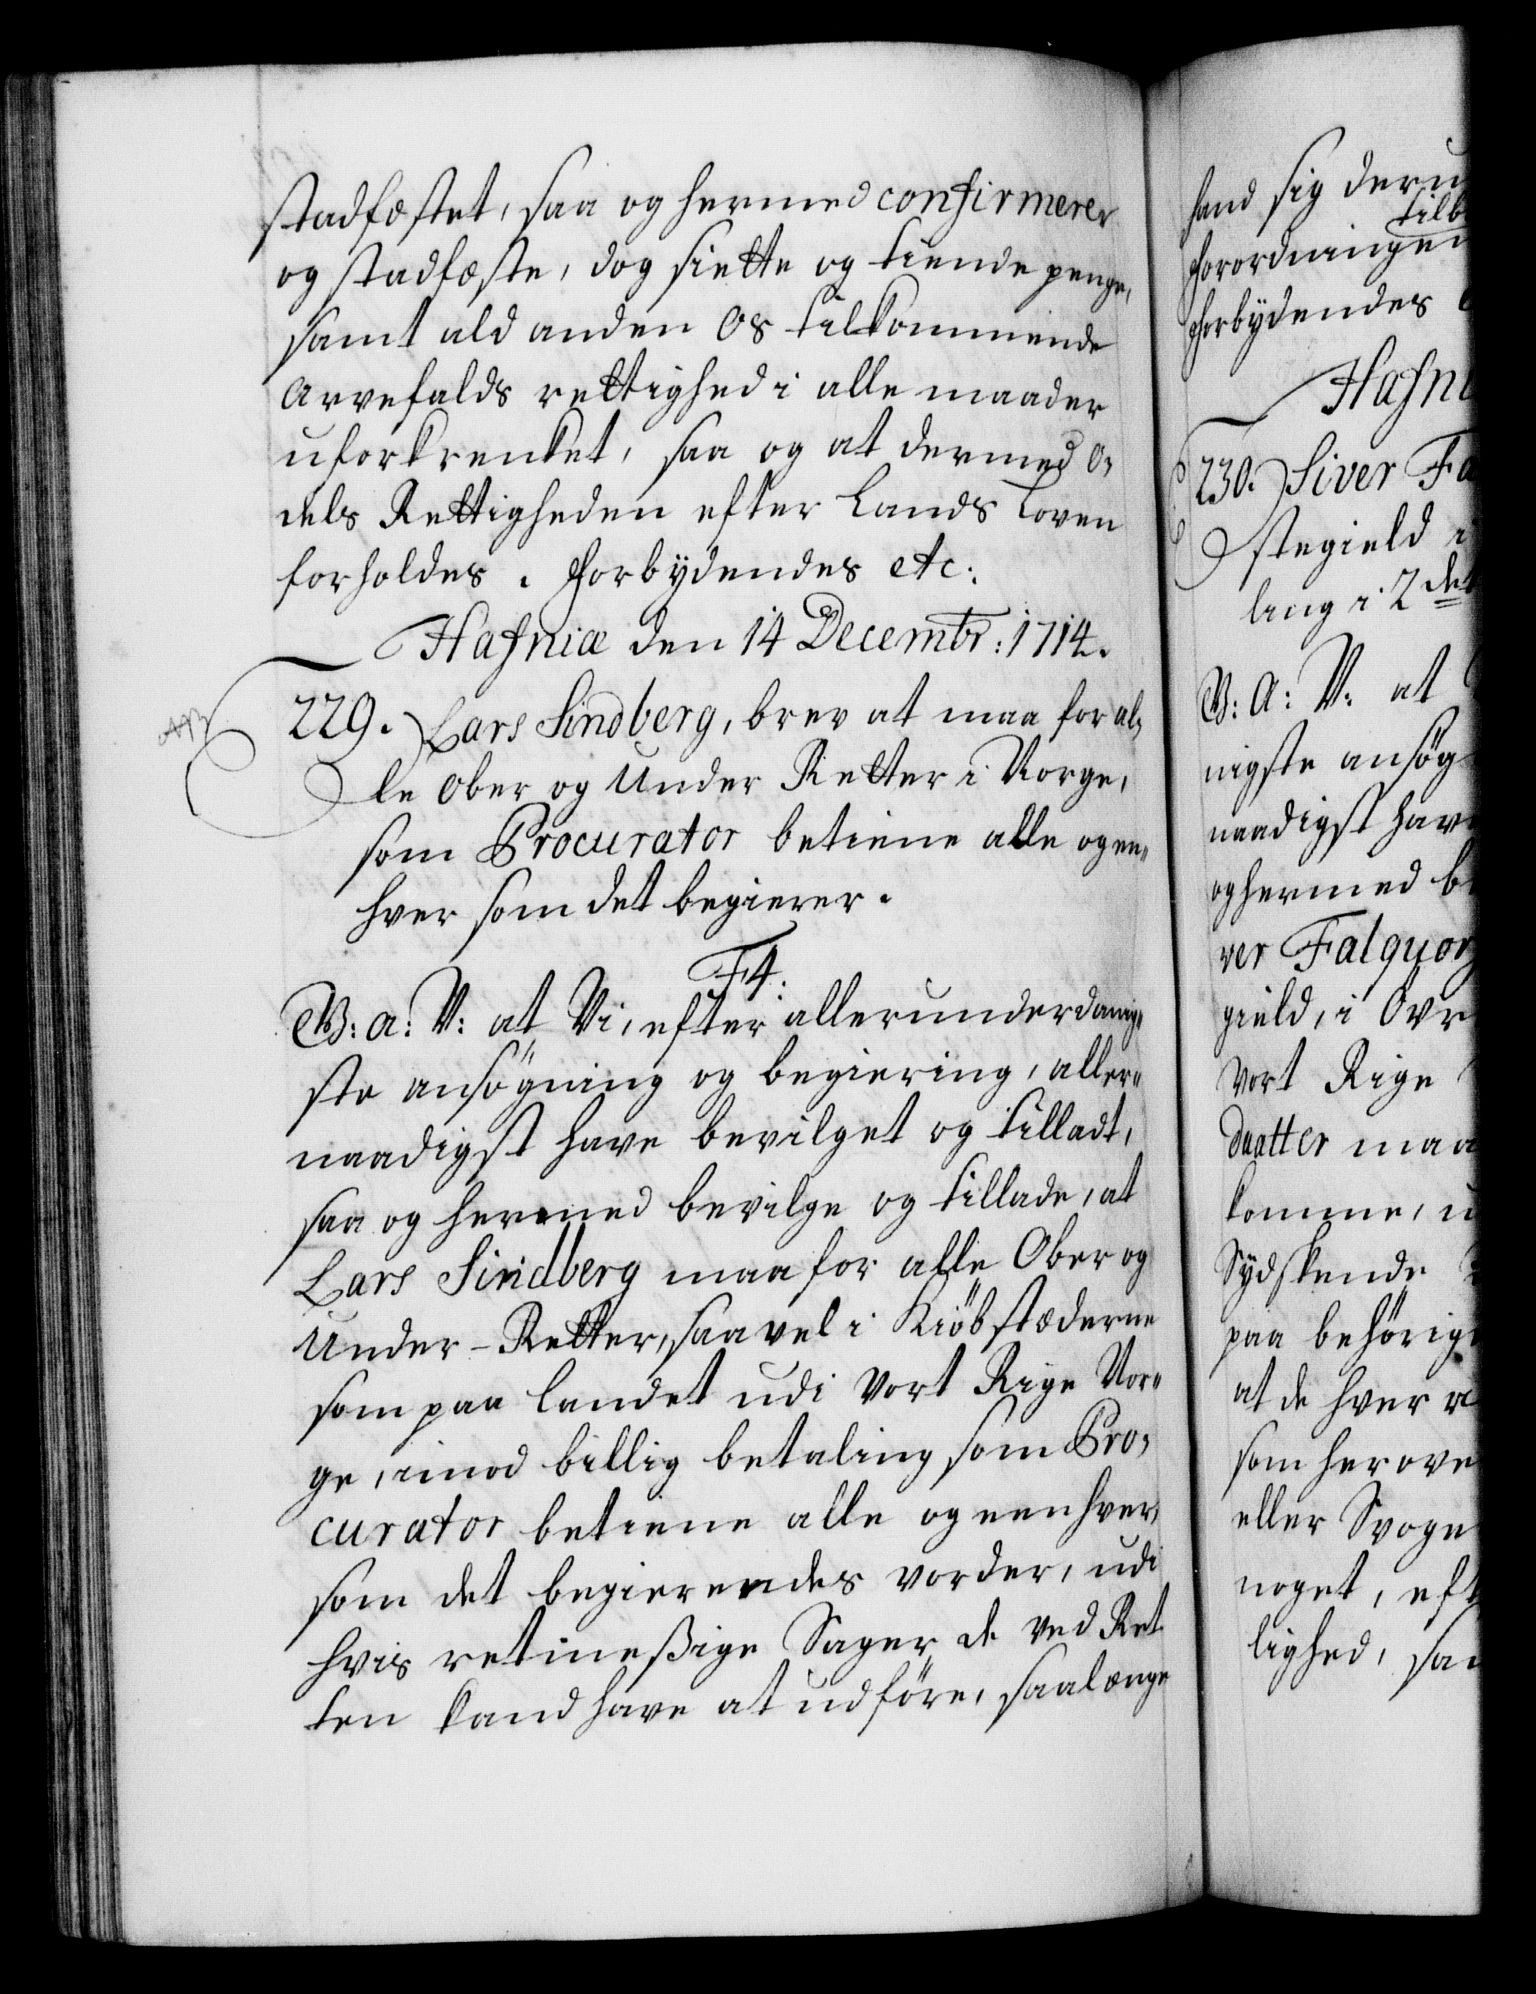 stadfæstet, saa og hermed confirmerer
og stadfæste, dog siette og tiende penge,
samt ald anden Os tilkommende
Arvefalds rettighed i alle maader
uforkrenket, saa og at dermed O,
dels Rettigheden efter Lands Loven
forholdes. Forbÿdendes etc:
Hafniæ den 14 Decembr: 1714.
229. Lars Sindberg, brev at maa for al,
le Ober og Under Retter i Norge,
som Procurator betiene alle og en„
hver som det begierer.
F4:
W: a: V: at Vi, efter allerunderdanig„
ste ansøgning og begiering, aller„
naadigst have bevilget og tilladt,
saa og hermed bevilge og tillade, at
Lars Sindberg maa for alle Ober og
Under-Retter, saavel i Kiöbstæderne
som paa landet udi Vort Rige Nor„
ge, imod billig betaling som Pro,
curator betiene alle og eenhver,
som det begierendes vorder, udi
hvis retmeßige Sager de ved Ret
ten kand have at udföre, saalænge
hand sig deru
tilb
Forordningen
Forbÿdendes
Hafni
230. Siver Fa
stegield i
ling i 2det
W: A: V: at
nigste ansøg
naadigst hav
og hermed be
ver Falquor
gield, i Ovr
Vort Rige
daatter maa
komme, u
Sÿdskende
paa behörig
at de hver
som her ove
eller Svoge
noget, eft
lighed, sa